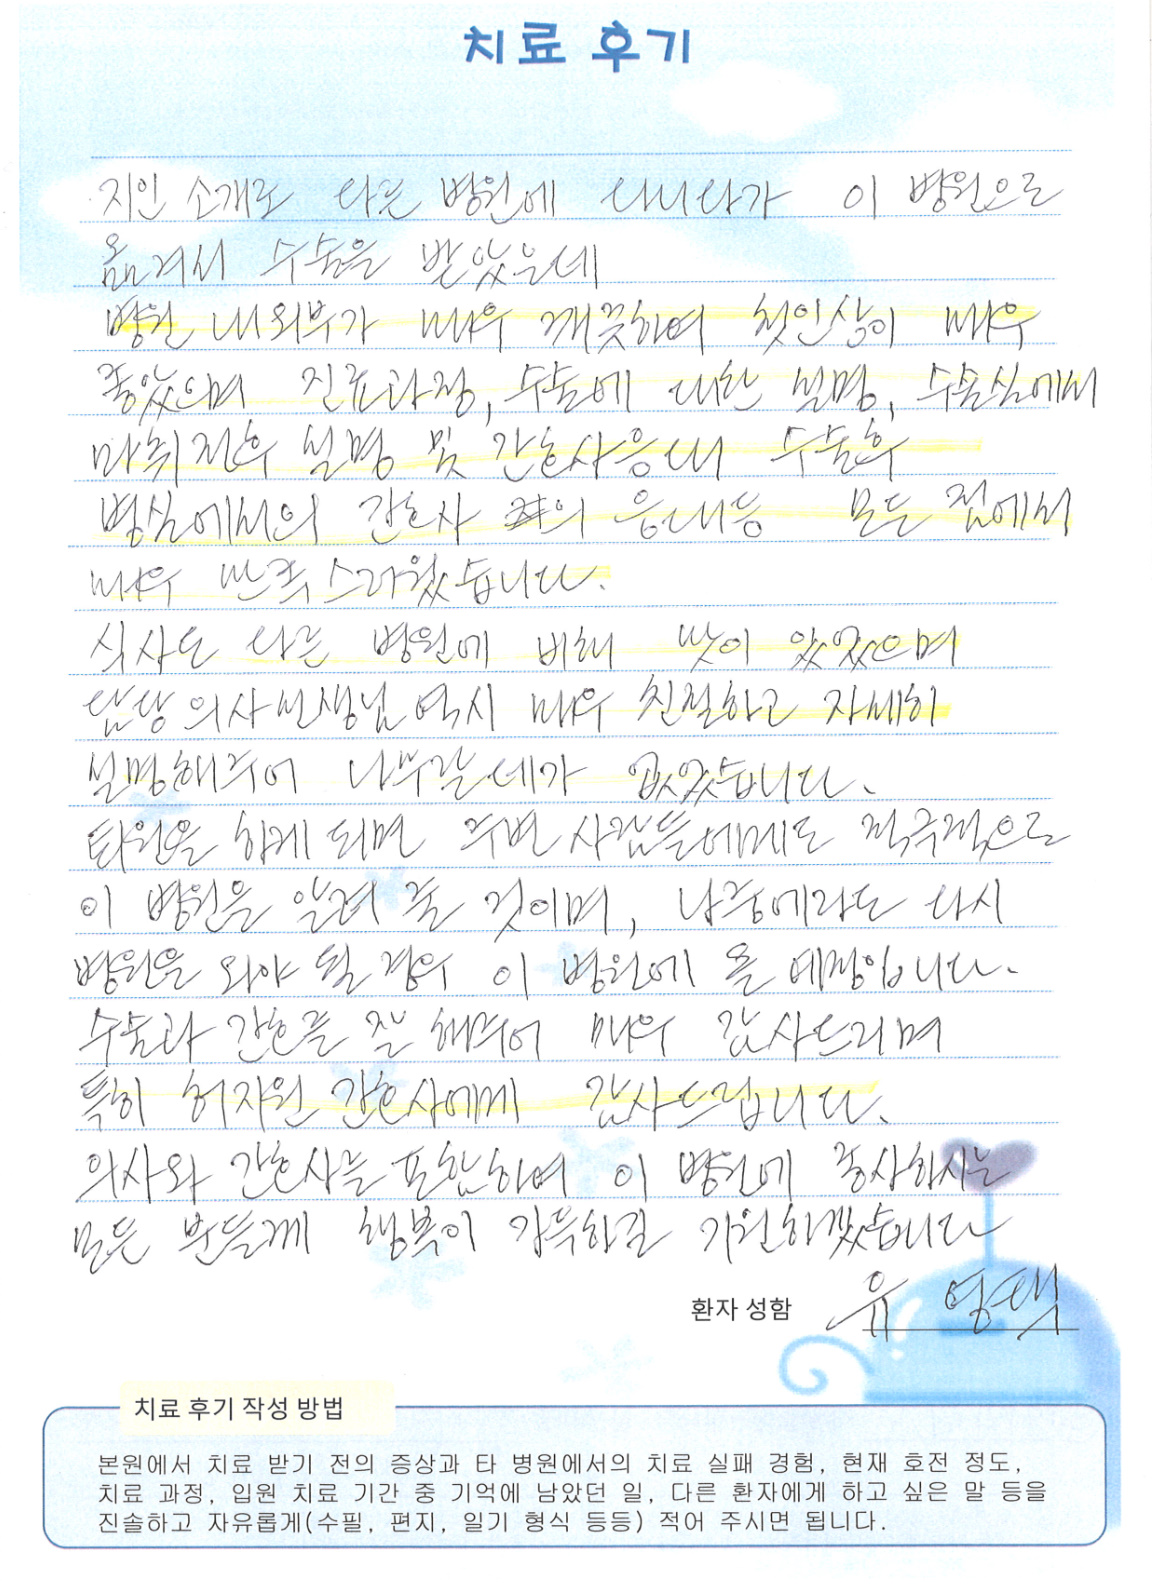 치료 후기
지인 소개로 다른 병원에 다니다가 이 병원으로
옮겨서 수술을 받았은데
병원 내외부가 매우 깨끗하여 첫인상이 매우
좋았으며 진료과정, 수술에 대한 설명, 수술실에서
마취전후 설명 및 간호사응대 수술후
병실에서의 간호사 의 응대등 모든 점에서
매우 만족스러웠습니다.
식사도 다른 병원에 비해 맛이 있었으며
담당의사선생님 역시 매우 친절하고 자세히
설명해주어 나무랄데가 없었습니다.
퇴원을 하게 되면 주변 사람들에게도 적극적으로
이 병원을 알려 줄 것이며, 나중에라도 다시
병원을 와야 될 경우 이 병원에 올 예정입니다.
수술과 간호를 잘 해주어 매우 감사드리며
특히 허자원 간호사에게 감사드립니다.
의사와 간호사를 포함하여 이 병원에 종사하시는
모든 분들께 행복이 가득하길 기원하겠습니다
환자 성함 유 영택
치료 후기 작성 방법
본원에서 치료 받기 전의 증상과 타 병원에서의 치료 실패 경험, 현재 호전 정도,
치료 과정, 입원 치료 기간 중 기억에 남았던 일, 다른 환자에게 하고 싶은 말 등을
진솔하고 자유롭게(수필, 편지, 일기 형식 등등) 적어 주시면 됩니다.